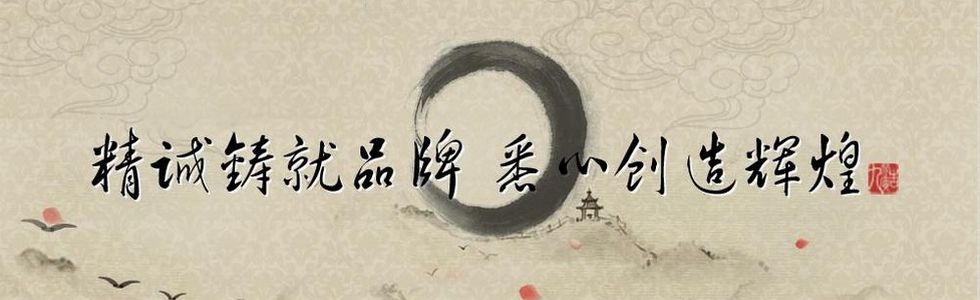 精诚铸就品牌 悉心创造辉煌